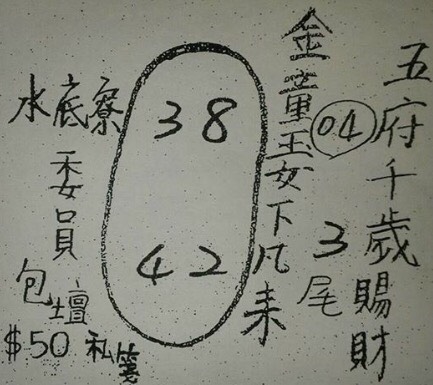 五府千歲賜財
04
3尾
金童玉女下凡来
38
42
水底寮
委員
包壇
$50 私箋